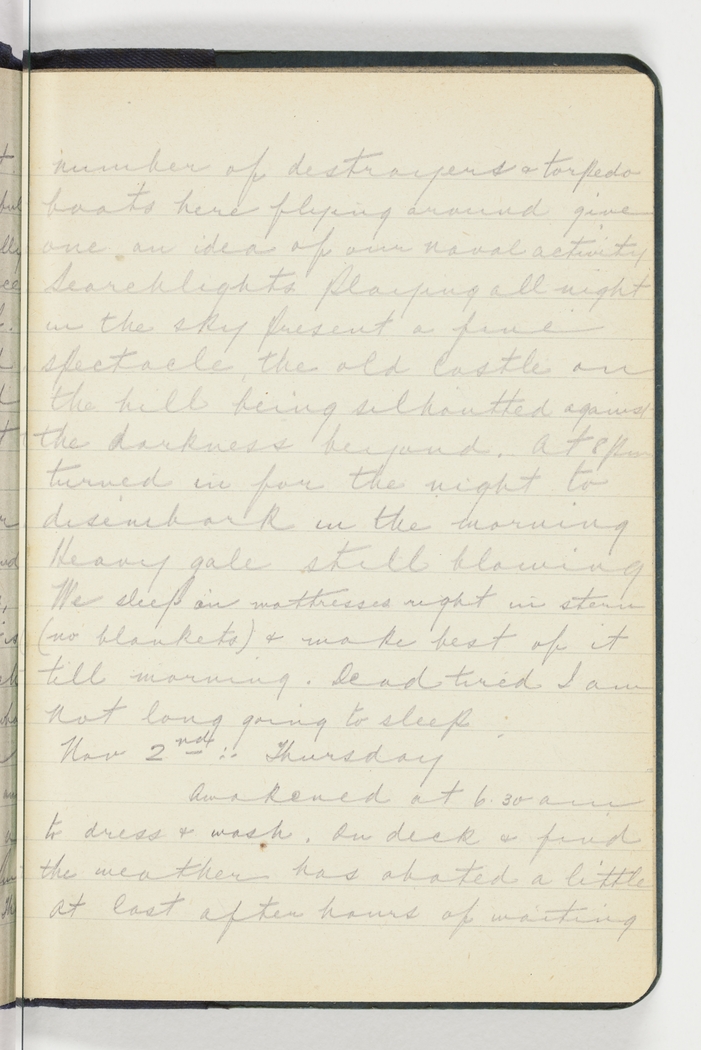 number of destroyers & torpedo
boats here flying around give
one an idea of our naval activity
Searchlights playing all night
in the sky present a fine
spectacle, the old castle on
the hill being silhoutted against
the darkness beyond. At 8 pm
turned in for the night to
disembark in the morning
Heavy gale still blowing
We sleep on mattresses right in stern
(no blankets) & make best of it
till morning. Dead tired I am
not long going to sleep.
Nov 2nd :: Thursday
Awakened at 6.30 am
to dress & wash. On deck & find
the weather has abated a little
at last after hours of waiting